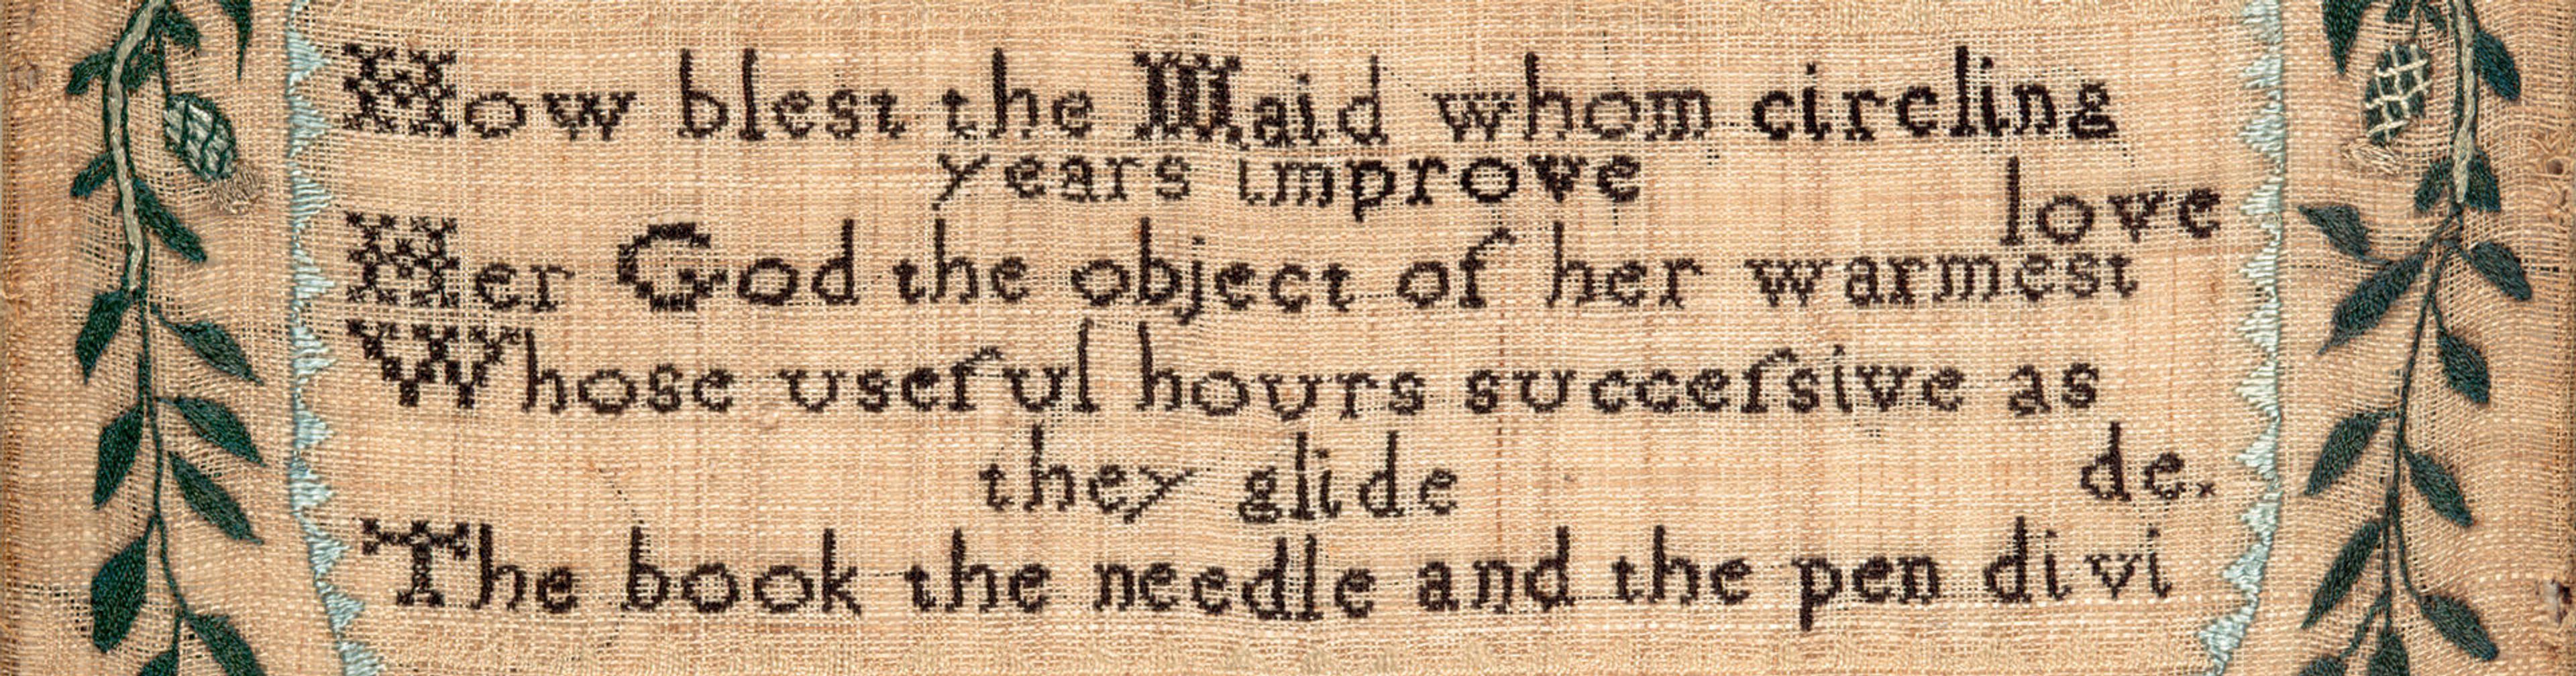 How blest the Maid whom circling
years improve
Her God the object of her warmest
love
Whose useful hours succeſsive as
they glide
The book the needle and the pen divi
de.